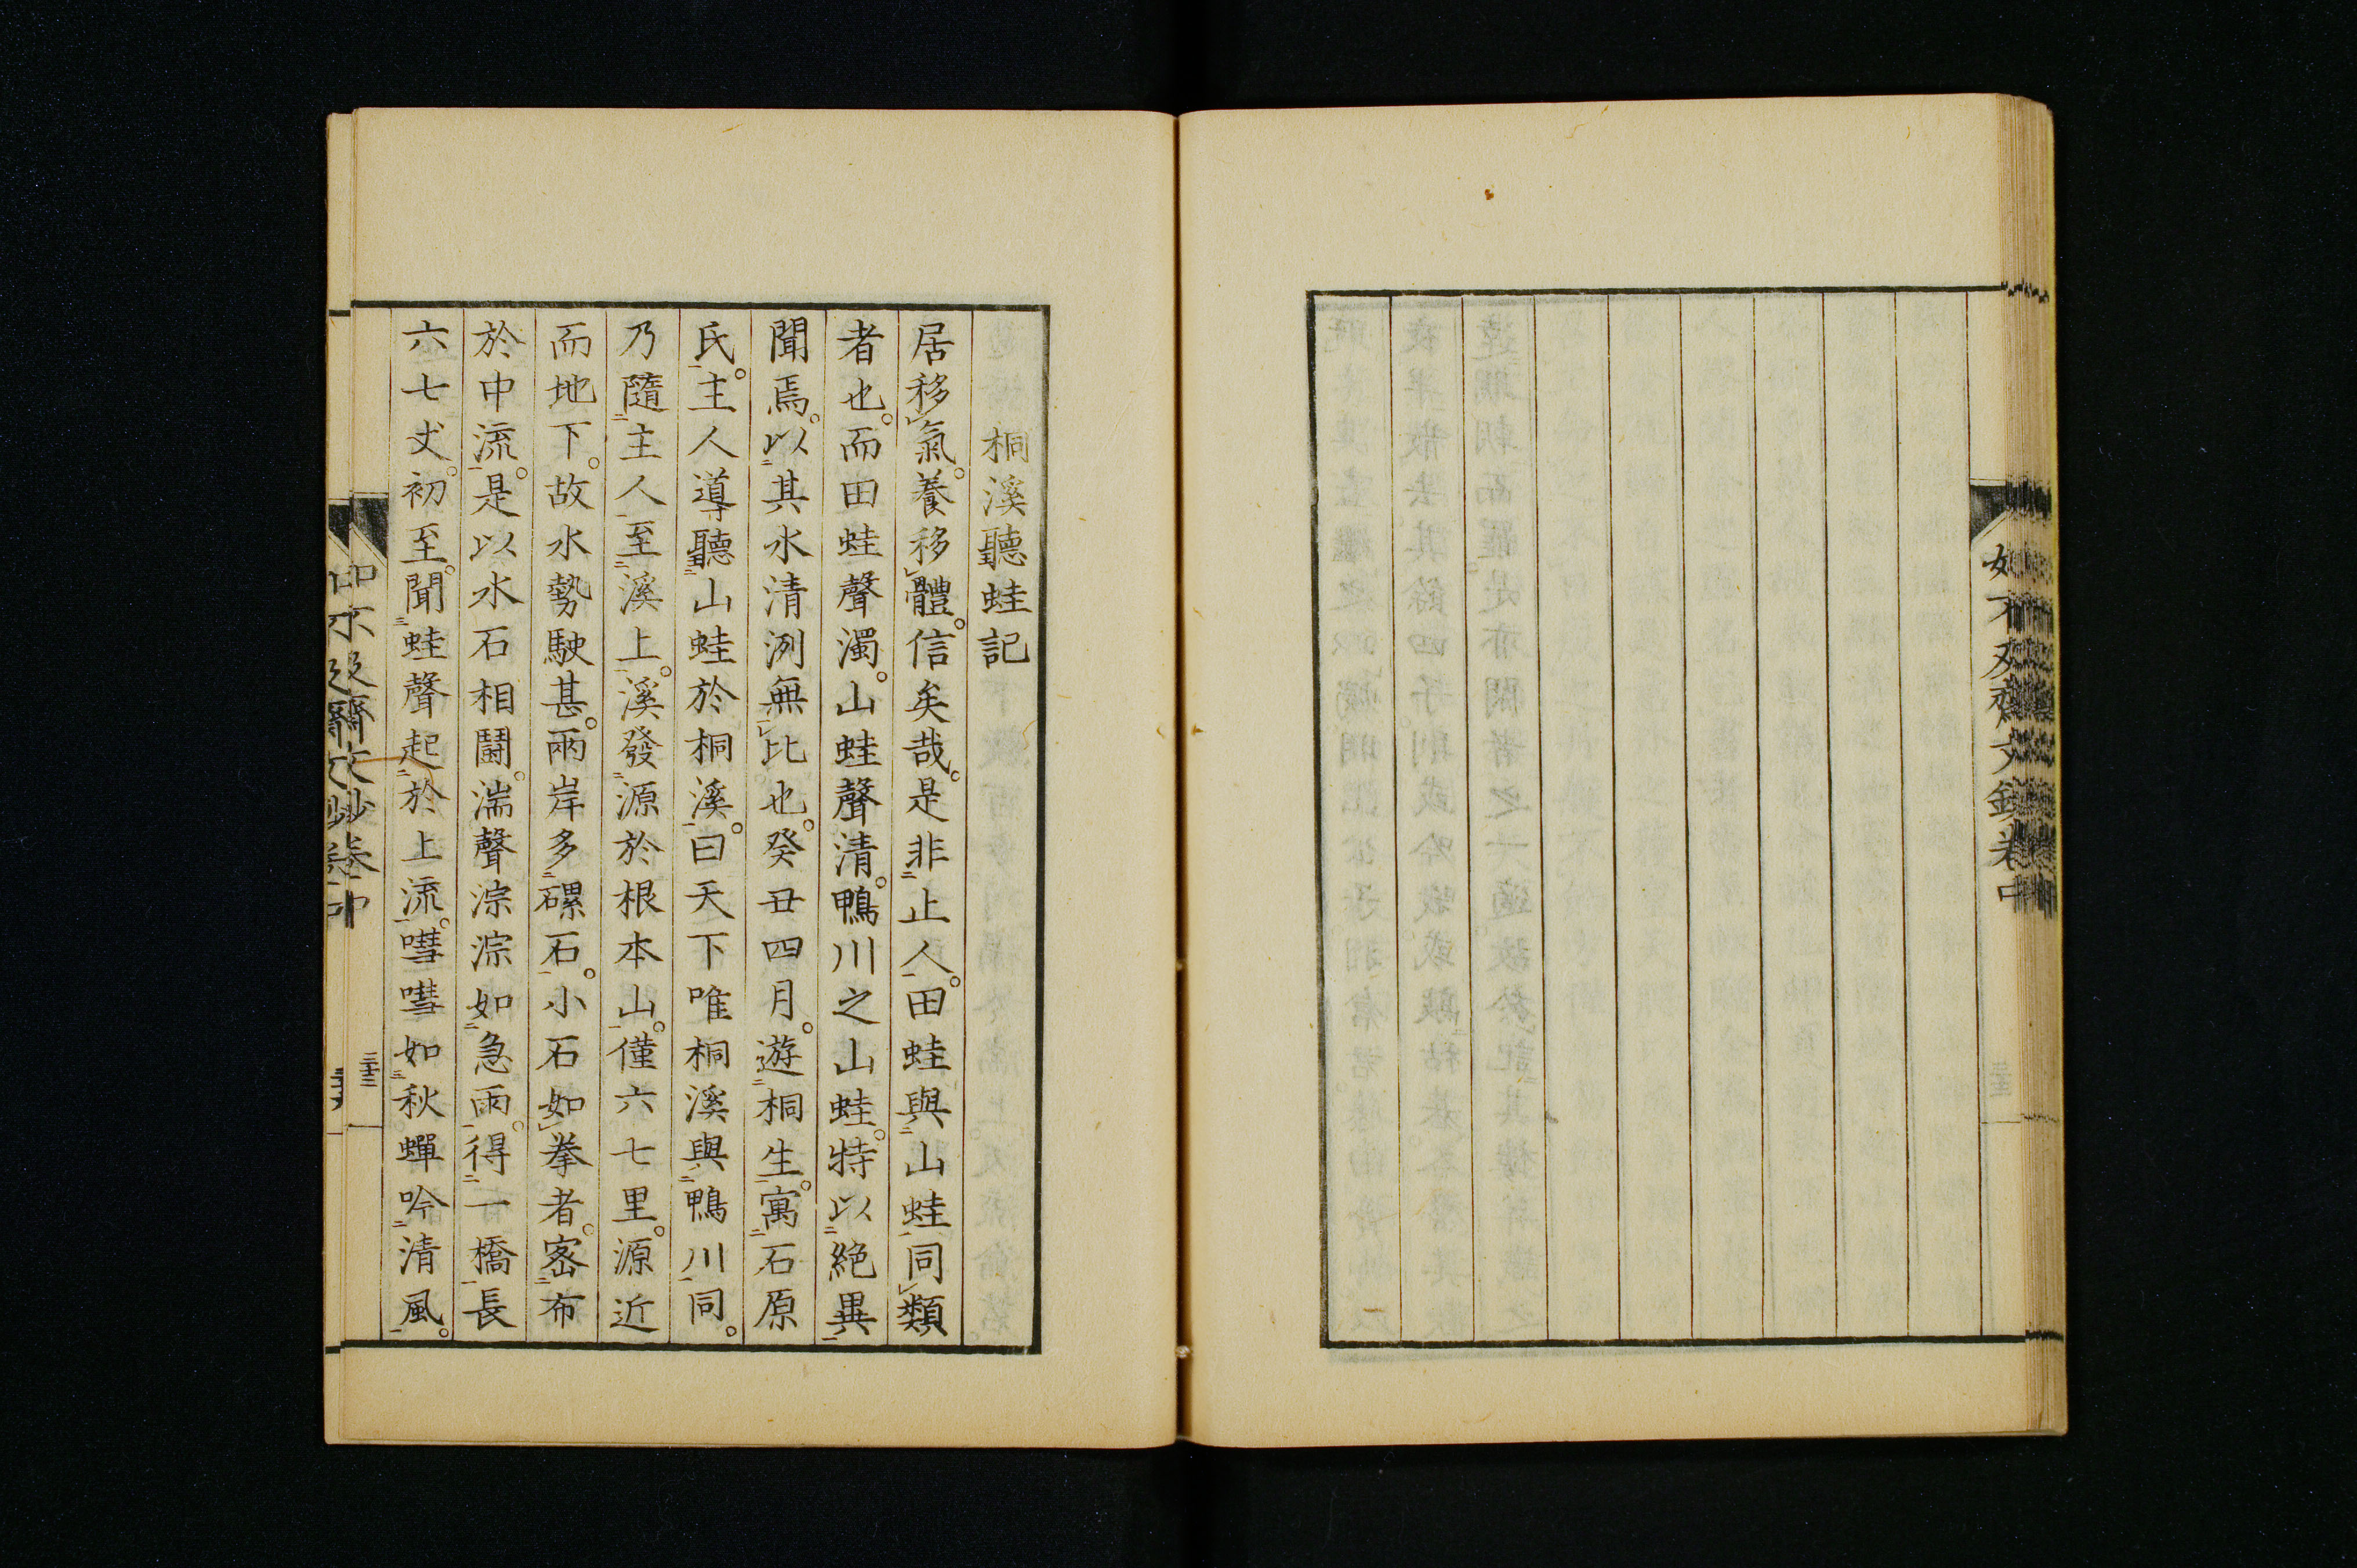 如不及齋文鈔卷中
桐溪聽蛙記
居移氣。養移體。信矣哉。是非止人。田蛙與山蛙同類
者也。而田蛙聲濁。山蛙聲清。鴨川之山蛙。特以絕異
聞焉。以其水清洌無比也。癸丑四月。遊桐生。寓石原
氏。主人導聽山蛙於桐溪。曰天下唯桐溪與鴨川同。
乃隨主人至溪上。溪發源於根本山。僅六七里。源近
而地下。故水勢駛甚。兩岸多磥石。小石如拳者。密布
於中流。是以水石相鬪。湍聲淙淙如急雨。得一橋長
六七丈。初至。聞蛙聲起於上流。嘒嘒如秋蟬吟清風。